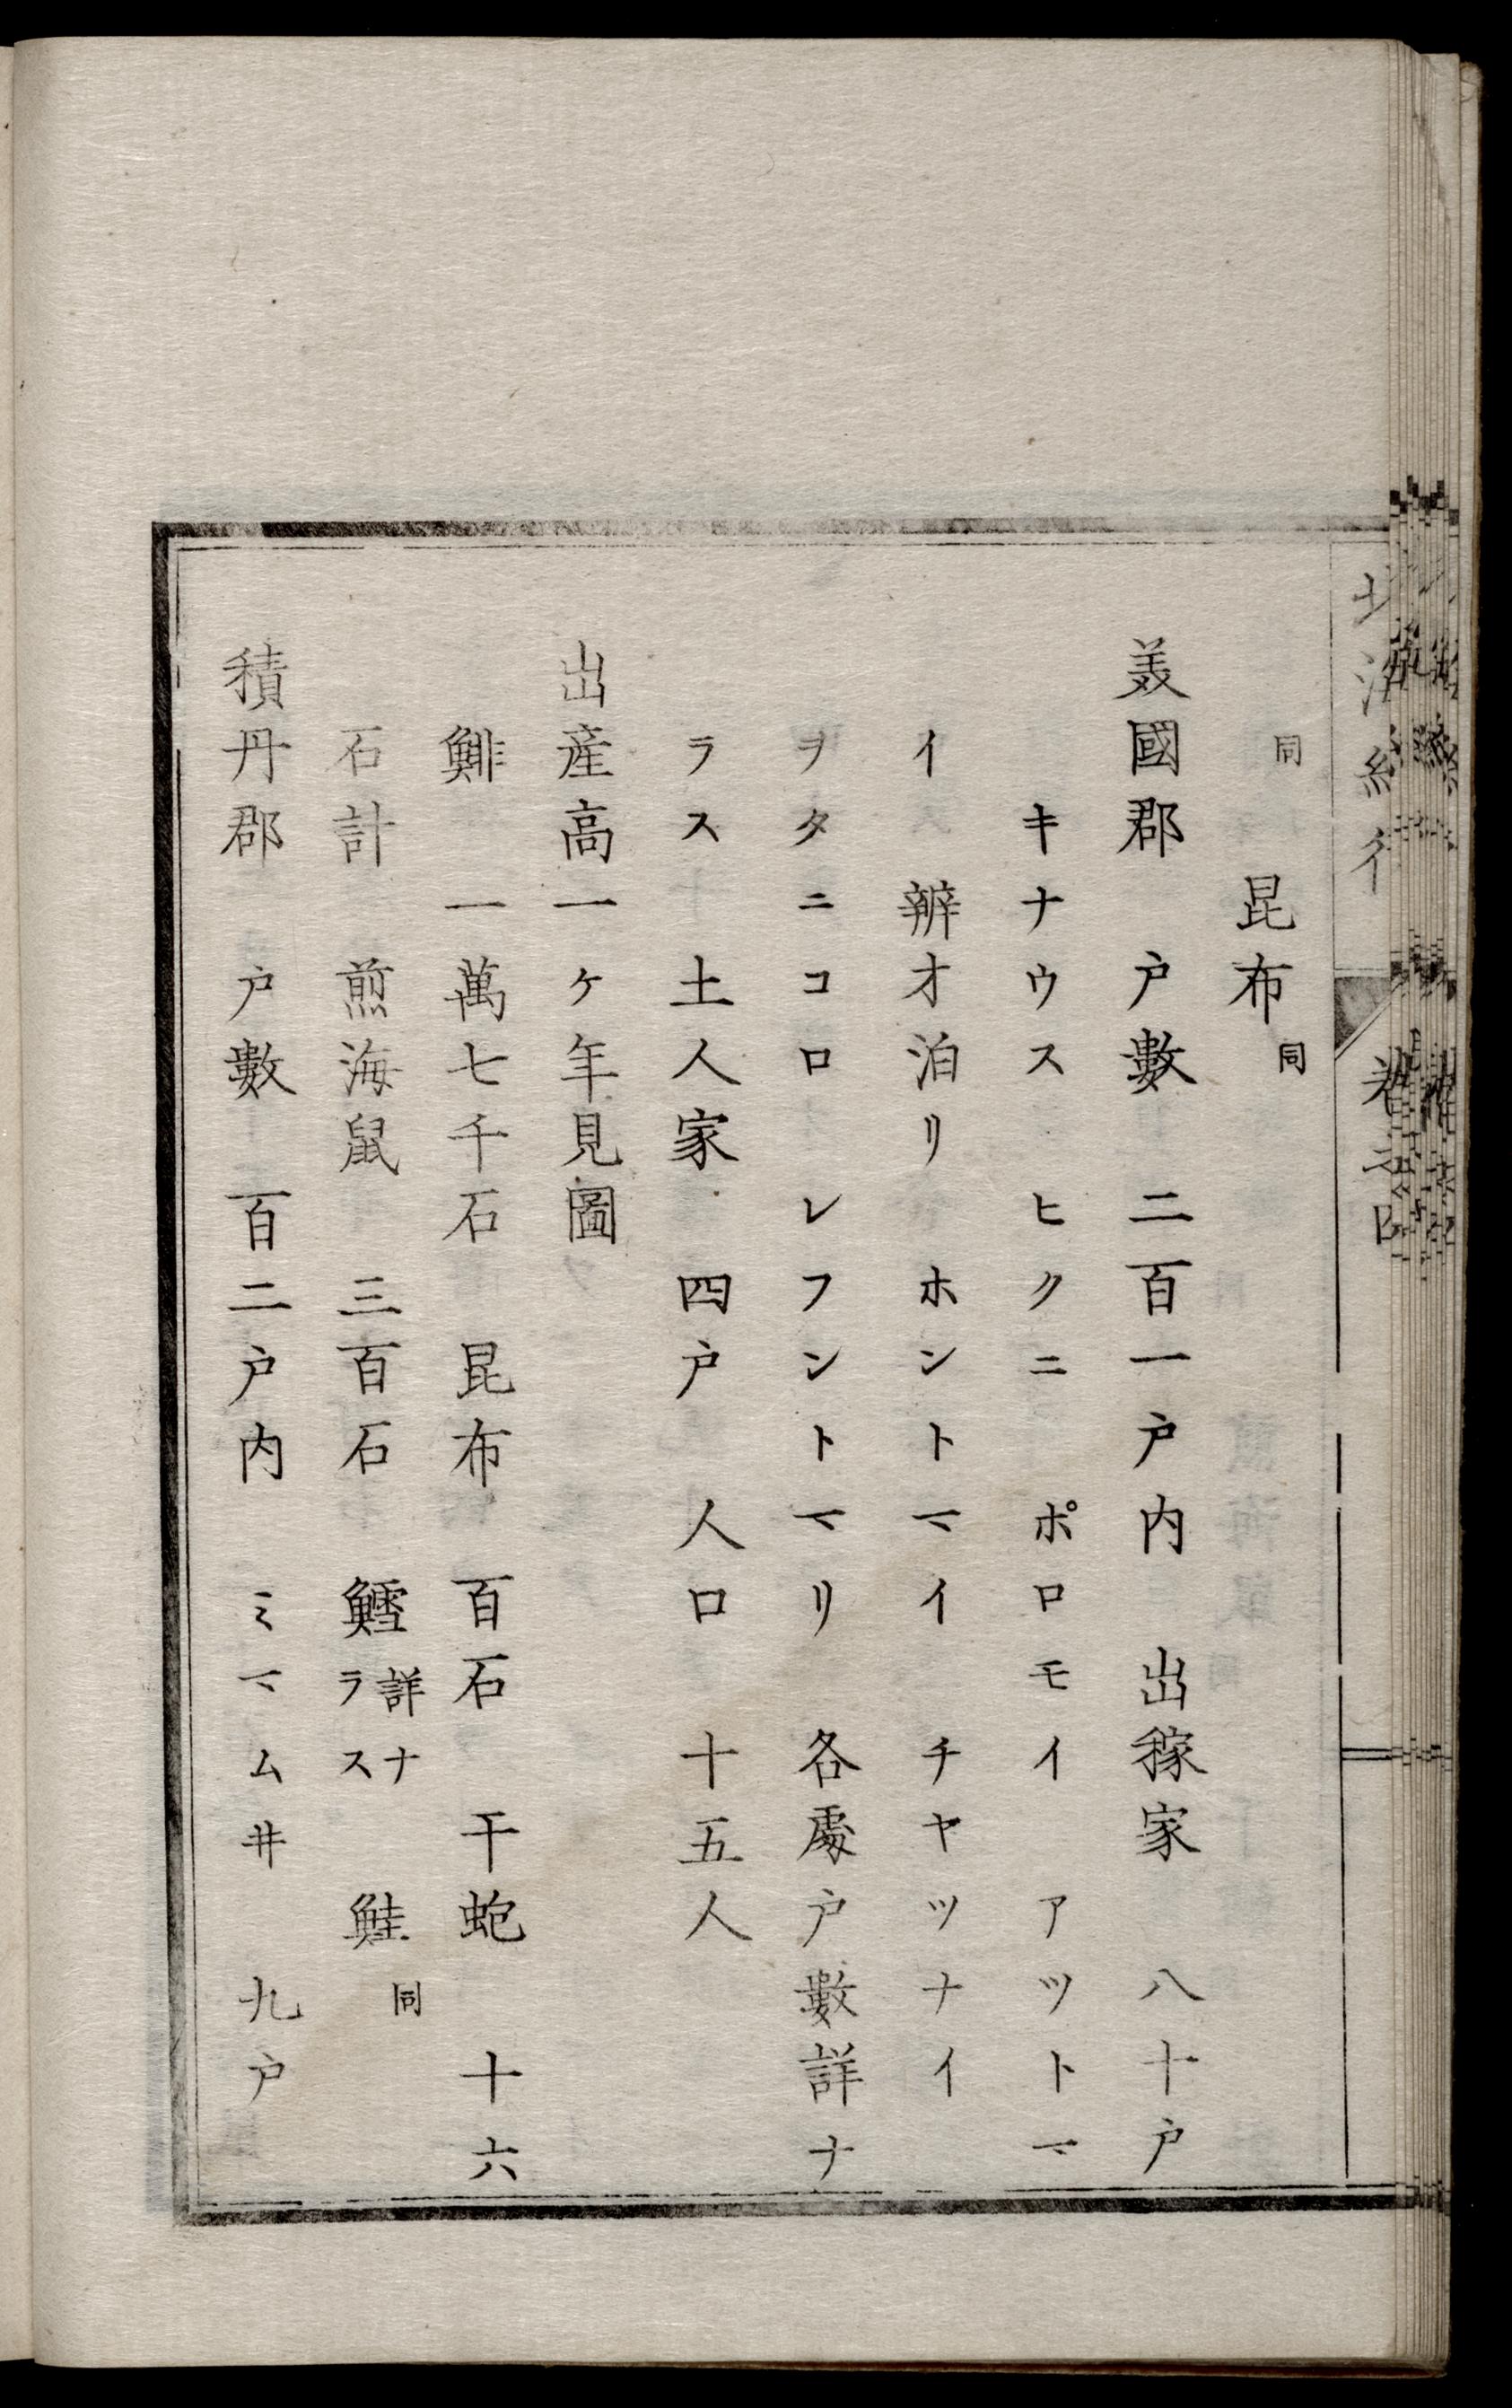 同　昆布同
美國郡　戸數　二百一戸内　出稼家　八十戸
キナウス　ヒクニ　ポロモイ　アツトマ
イ　辨才泊リ　ホントマイ　チヤツナイ
ヲタニコロ　レフントマリ　各處戸數詳ナ
ラス　土人家　四戸　人口　十五人
出産高一ケ年見圖
鯡　一萬七千石　昆布　百石　干鮑　十六
石計　煎海鼠　三百石　鱈詳ナラス　鮭同
積丹郡　戸數　百二戸内　ミマム井　九戸